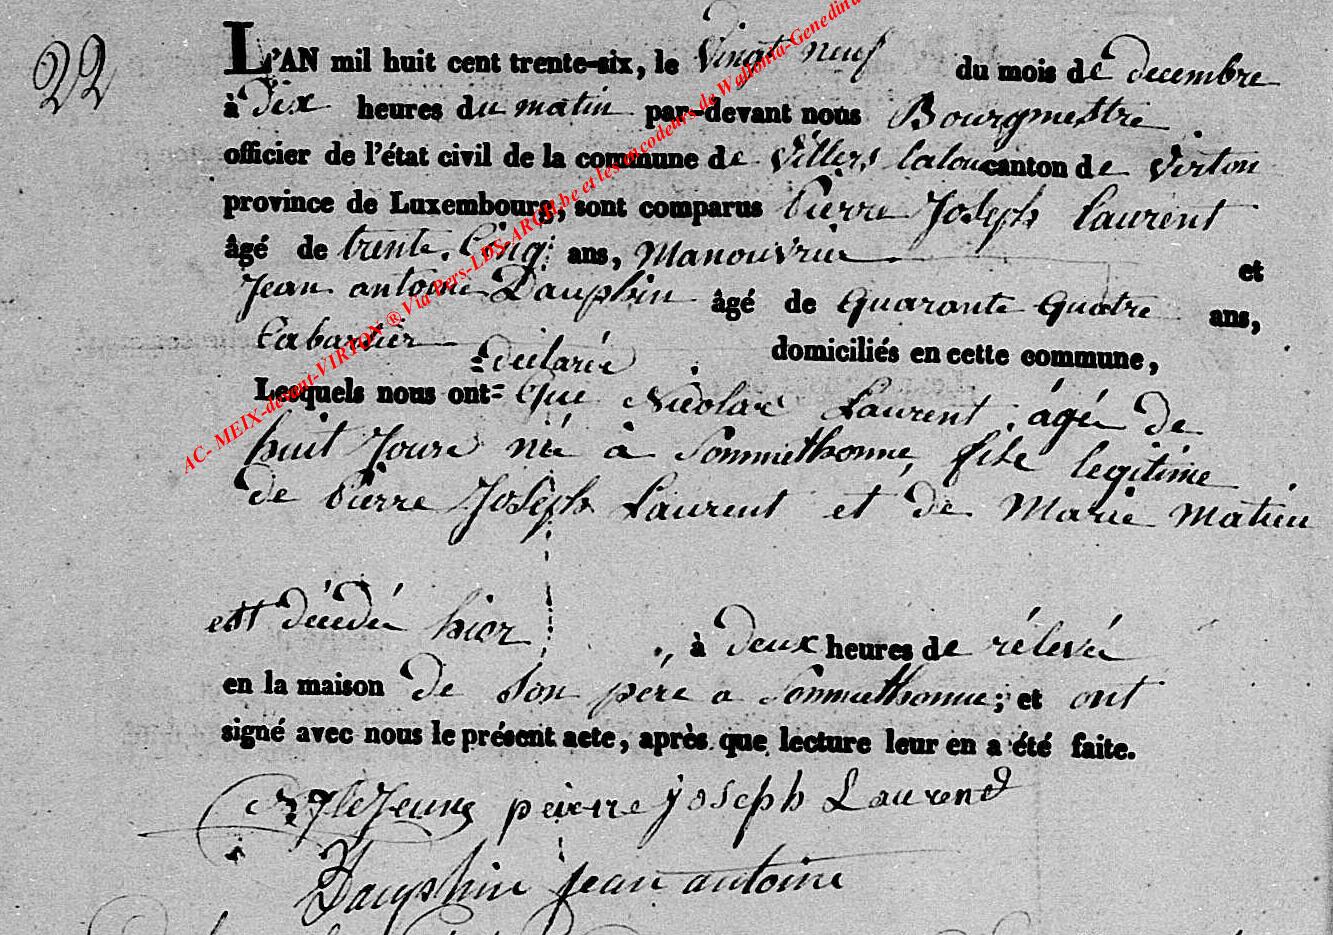 22
L'AN mil huit cent trente-six, le Vingt neuf du mois de decembre
à dix heures du matin par-devant nous Bourgmestre
officier de l'état civil de la commune de Villers laloue canton de Virton
province de Luxembourg, sont comparus Pierre Joseph Laurent
âgé de trente Cinq ans, Manouvrier et
Jean antoine Dauphin âgé de Quarante Quatre ans,
Cabartier domiciliés en cette commune,
declaré
Lesquels nous ont= que Nicolas Laurent agé de
huit Jours né à Sommethonne, fils legitime
de Pierre Joseph Laurent et de Marie Matieu
est décédé hier à deux heures de rélevé
en la maison de son père a Sommethonne; et ont
signé avec nous le présent acte, après que lecture leur en a été faite.
LeJeune peierre joseph Laurend
Dauphin jean antoine
AC- MEIX-devant-VIRTON ® Via Pers-LDS-ARCH.be et les encodeurs de Wallonia-Genedin